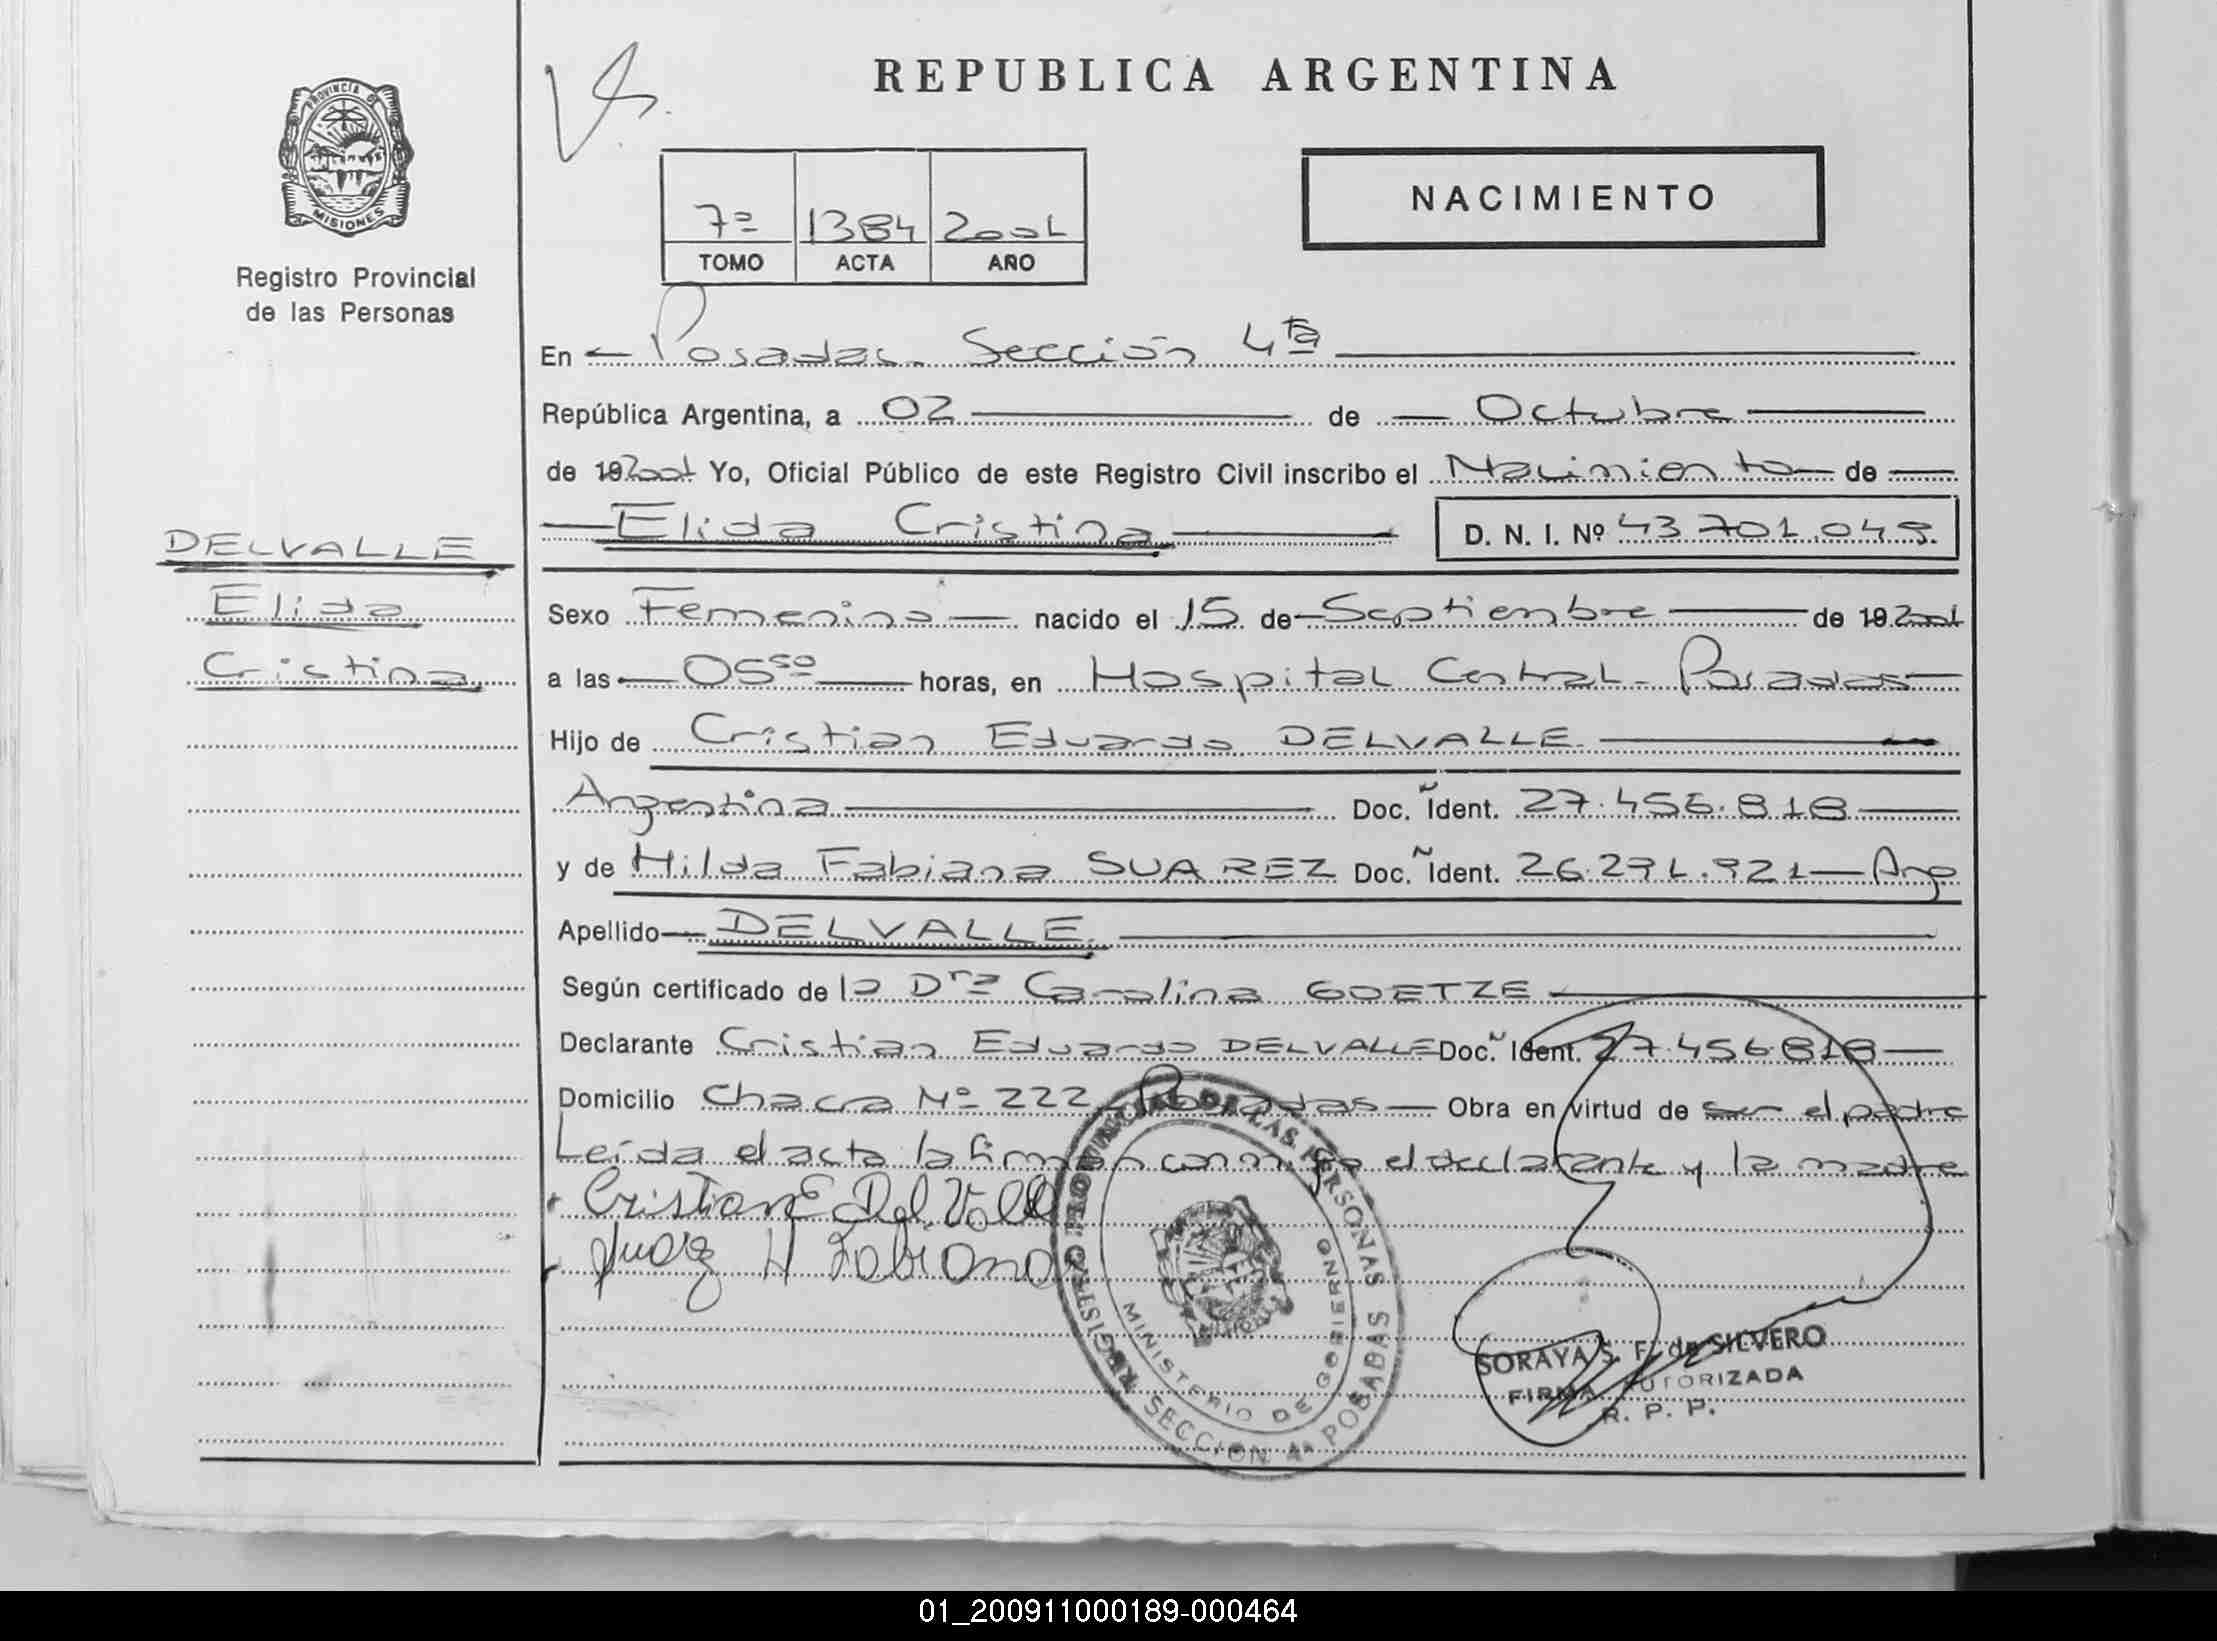 REPUBLICA ARGENTINA
PROVINCIA DE
MISIONES
Registro Provincial
de las Personas
NACIMIENTO
7ª 1384 2001
TOMO ACTA AÑO
En Posadas. Sección 4ta
República Argentina, a 02 de Octubre
de 19 2001 Yo, Oficial Público de este Registro Civil inscribo el Nacimiento de
Elida Cristina D. N. I. Nº 43.701.049.
DELVALLE
Elida
Cristina
Sexo Femenino nacido el 15 de Septiembre de 19 2001
a las 05 50 horas, en Hospital Central. Posadas
Hijo de Cristian Eduardo DELVALLE.
Argentina Doc. Ident. 27.456.818
y de Hilda Fabiana SUAREZ Doc. Ident. 26.291.921 Arg
Apellido DELVALLE.
Según certificado de la Dra Carolina GOETZE
Declarante Cristian Eduardo DELVALLE Doc. Ident. 27.456.818
Domicilio Chacra Nº 222 Posadas Obra en virtud de ser el padre
Leída el acta la firman conmigo el declarante y la madre
Cristian E Del Valle
Suarez H Fabiana
REGISTRO PROVINCIAL DE LAS PERSONAS
MINISTERIO DE GOBIERNO
SECCION 4ª POSADAS
SORAYA S. F. de SILVERO
FIRMA AUTORIZADA
R. P. P.
01_200911000189-000464